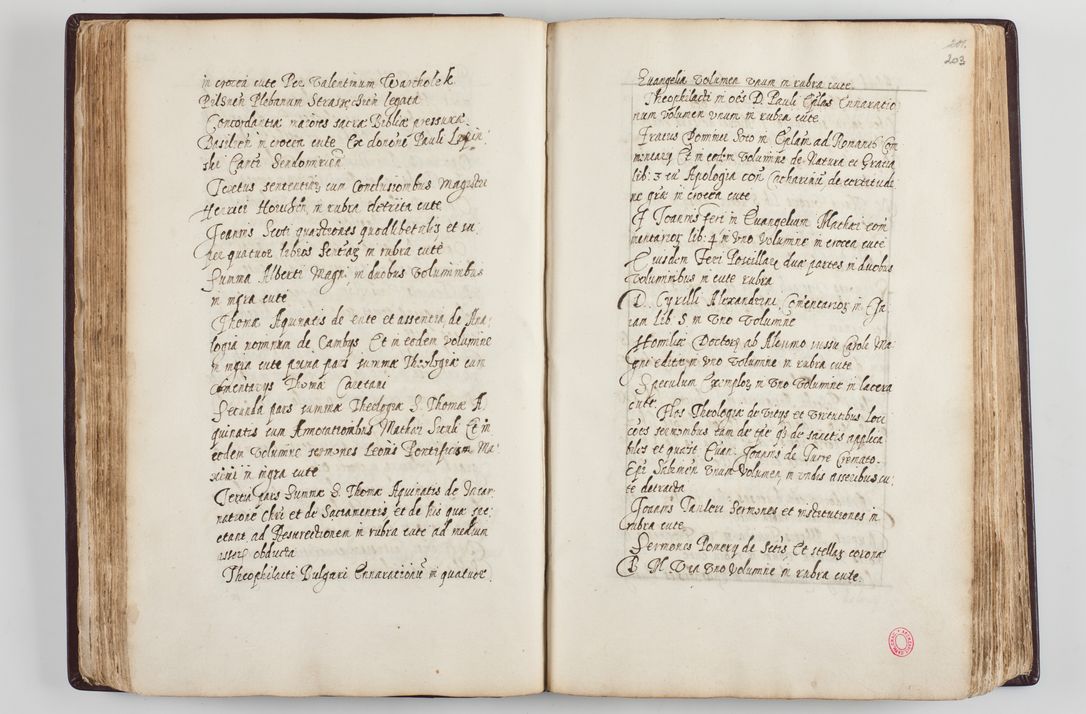 in crocea cute Per Valentinum Warcholek
Pilsnen Plebanum Strasz legata
Concordantiæ maiores sacræ Bibliæ pressura
Basilien in crocea cute Ex donone Pauli
ski Canti Sendomirien
Textus sententiarum cum Conclusionibus Magistri
Henrici in rubra detrita cute
Joannis Scoti quæstiones quodlibetales et su
per quatuor libros Sentiarum in rubra cute
Summa Alberti Magni in duobus voluminibus
in nigra cute
Thomæ Aquinatis de ente et essentia, de Ana
logia nominum de Cambys Et in eodem volumine
in nigra cute prima pars summæ Theologiæ cum
comentarys Thomæ Caietani
Secunda pars summæ Theologiæ S. Thomæ A
quinatis cum Annotationibus Mathæi Et in
eodem volumine sermones Leonis Pontificis Ma
ximi in nigra cute
Tertia pars Summæ S. Thomæ Aquinatis de Incar
natione Chri et de Sacramentis et de his quæ spe
ctant ad Resurectionem in rubra cute ad medium
asseris obducta
Theophilacti Bulgari Ennarationum in quatuor
201.
203
Euangelia volumen vnum in rubra cute.
Theophilacti in oēs D. Pauli Eplas Ennaratio
num volumen vnum in rubra cute
Fratris Dominici Soto in Eplam ad Romanos Com
mentarÿ Et in eodem volumine de Natura et Gracia
lib: 3 cū Apologia con Catharinū de certitudi
ne græ in crocea cute
F Joannis Feri in Euangelium Mathæi com
mentariorum lib: 4 in vno volumine in crocea cute
Eiusdem Feri Postillæ duæ partes in duobus
voluminibus in cute rubra
D. Cyrilli Alexandrini Comentariorum in Isa
iam Lib 5 in vno volumine
Homiliæ Doctorum ab Alcuino iussu Caroli Ma
gni editæ in vno volumine in rubra cute
Speculum Exemplorum in vno volumine in lacera
cute.
Flos Theologiæ de vitys et virtutibus Loci
cōes sermonibus tam de tpe qz de sanctis applica
biles et quatr Euan. Joannis de Turre Cremato.
Epi Sabinen vnum Volumen, in nudis asseribus cu
te detracta
Joannis Tauleri Sermones et institutiones in
rubra cute
Sermones Pomery de Sctis. Et stellarum corona
B M V in vno volumine in rubra cute